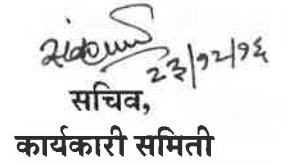 २३/१२/१६
सचिव,
कार्यकारी समिती